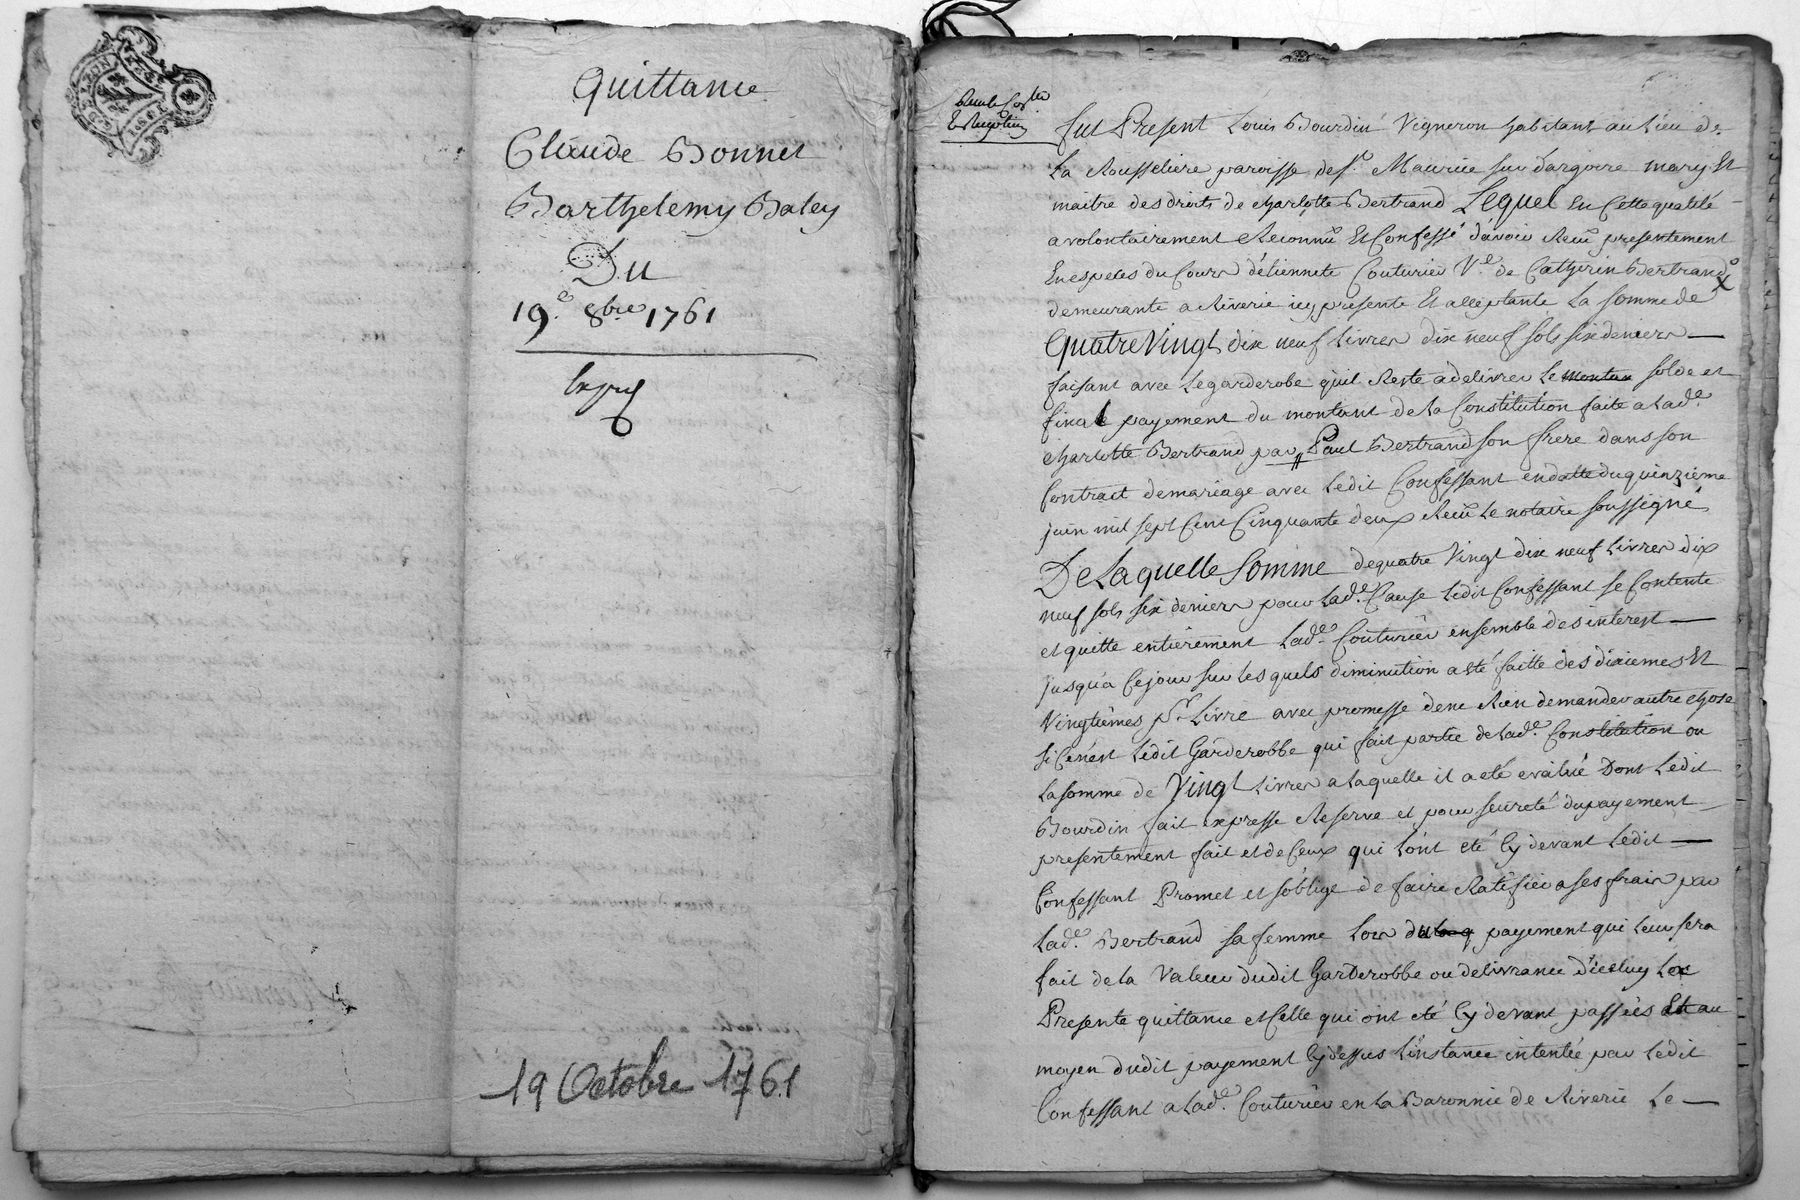 Quittance
Claude Bonnet
Barthelemy Baley
Du
19e. 8bre 1761
19 Octobre 1761
fut Present Louis Bourdin Vigneron habitant au Lieu de
La Rousseliere paroisse de St. Maurice sur dargoire mary Et
maitre des droits de charlotte Bertrand Lequel En Cette qualité
a volontairement Reconnu Et Confessé d'avoir Reçu presentement
En especes du Cours d'étiennete Couturier Ve. de Catherin Bertrand
demeurante a Riverie icy presente Et acceptante La somme de
Quatre Vingt dix neuf Livres dix neuf sols six deniers
faisant avec Le garderobe qu'il Reste a delivrer Le montan solde et
final payement du montant de La Constitution faite a Lade.
charlotte Bertrand par Paul Bertrand son frere dans son
Contract de mariage avec Ledit Confessant en datte du quinzieme
juin mil sept Cent Cinquante deux Reçu Le notaire soussigné
De Laquelle Somme de quatre Vingt dix neuf Livres dix
neuf sols six deniers pour Lade. Cause Ledit Confessant se Contente
et quitte entièrement Lade. Couturier ensemble des interest
jusqu'a Ce jour sur Lesquels diminution a été faitte des dixiemes Et
Vingtièmes pr. Livre avec promesse de ne Rien demander autre chose
si Ce n'est Ledit Garderobbe qui fait partie de Lade. Constitution ou
La somme de Vingt Livres a Laquelle il a eté evalué Dont Ledit
Bourdin fait expresse Reserve et pour seureté du payement
presentement fait et de Ceux qui L'ont eté Cy devant Ledit
Confessant Promet et s'oblige de faire Ratifier a ses frais par
Lade. Bertrand sa femme Lors du payement qui Leur sera
fait de La Valeur dudit Garderobbe ou delivrance d'iceluy La
Presente quittance et Celle qui ont eté Cy devant passées Et au
moyen dudit payement Cy dessus L'instance intentée par Ledit
Confessant a Lade. Couturier en La Baronnie de Riverie Le